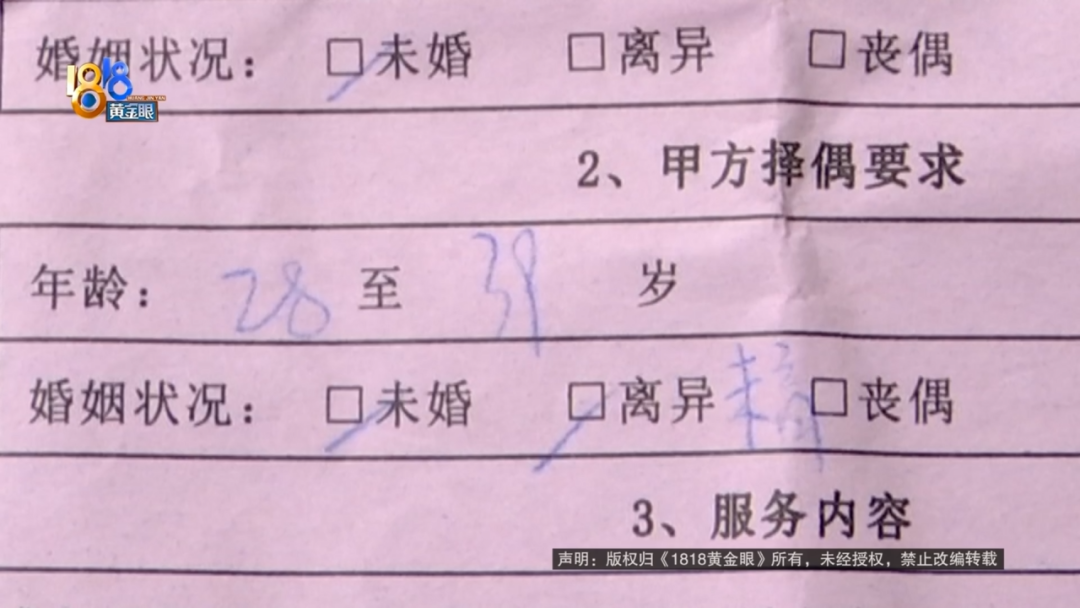 婚姻状况： □未婚 □离异 □丧偶
1818
黄金眼
2、甲方择偶要求
年龄： 28 至 39 岁
婚姻状况： □未婚 □离异 未育 □丧偶
3、服务内容
声明：版权归《1818黄金眼》所有，未经授权，禁止改编转载